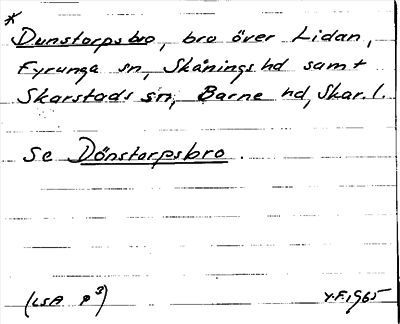 *
Dunstorpsbro, bro över Lidan,
Fyrunga sn, Skånings hd samt
Skarstads sn, Barne hd, Skar. l.
Se Dönstorpsbro.
(LSA P³) Y.F. 1965